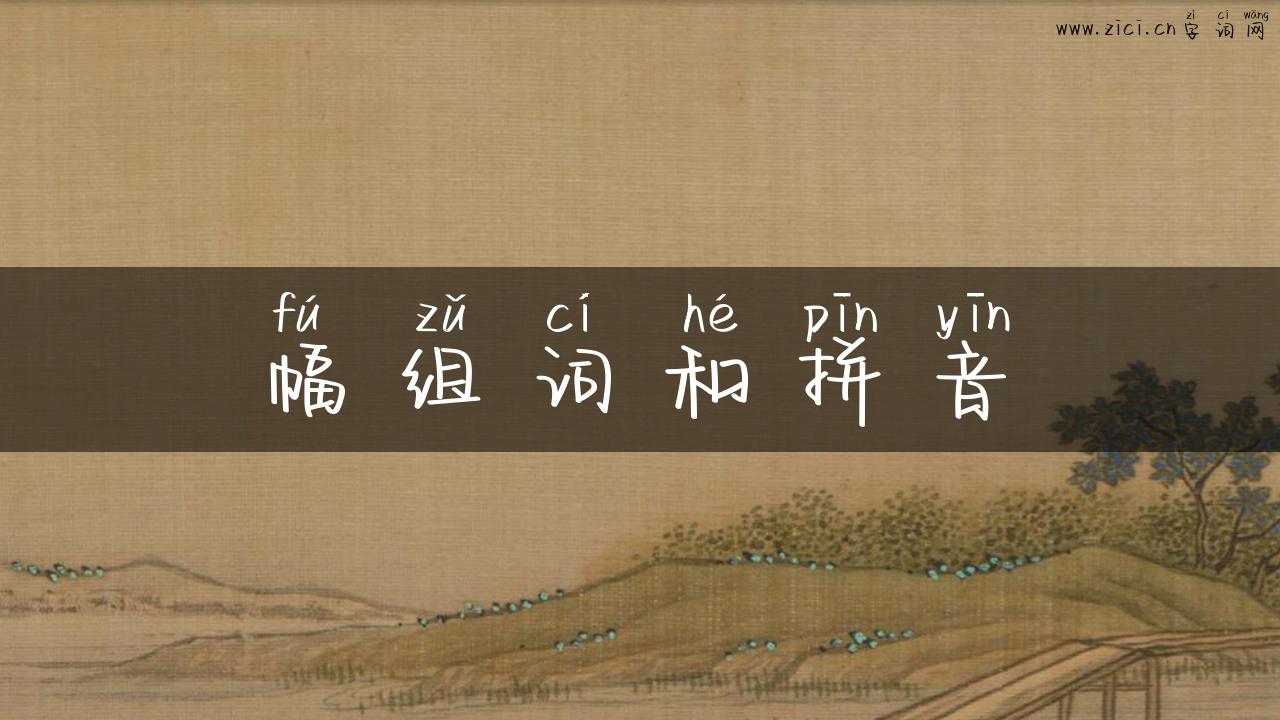 zì cí wǎng
www.zici.cn字词网
fú zǔ cí hé pīn yīn
幅组词和拼音